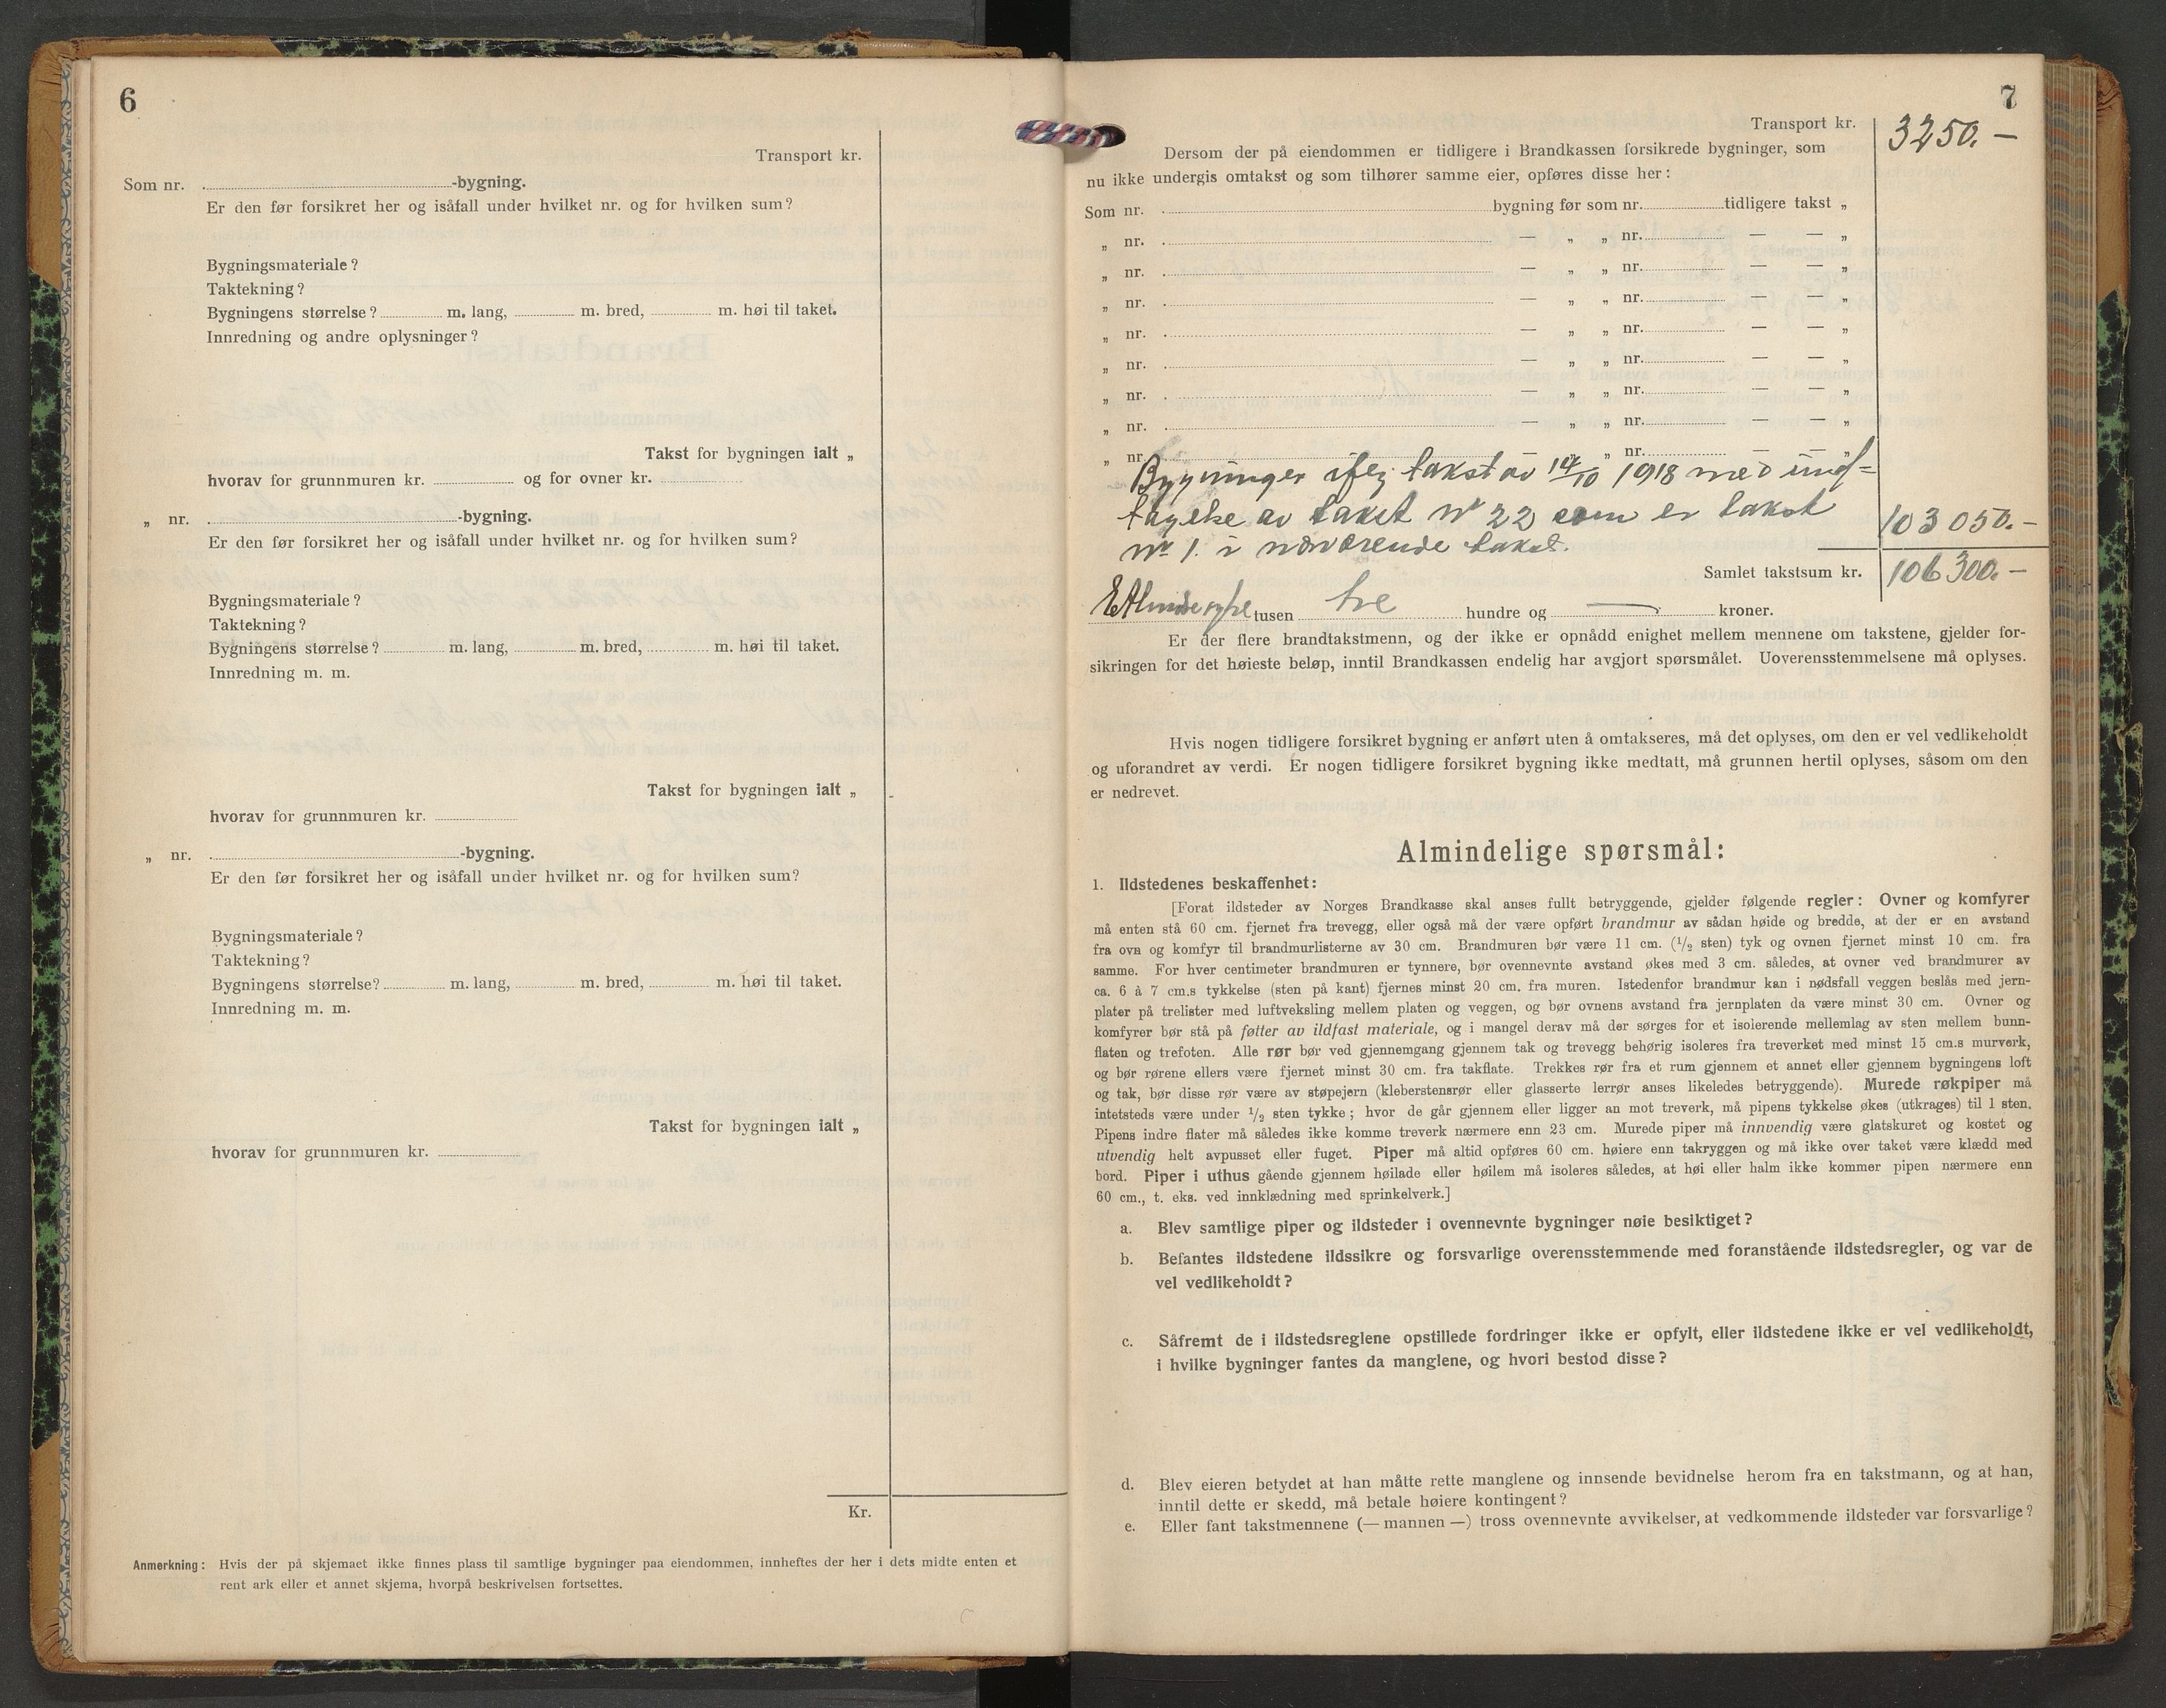 6
Transport kr.
Som nr. -bygning.
Er den før forsikret her og isåfall under hvilket nr. og for hvilken sum?
Bygningsmateriale?
Taktekning?
Bygningens størrelse? m. lang, m. bred, m. høi til taket.
Innredning og andre oplysninger?
Takst for bygningen ialt „
hvorav for grunnmuren kr. og for ovner kr.
„ nr. -bygning.
Er den før forsikret her og isåfall under hvilket nr. og for hvilken sum?
Bygningsmateriale?
Taktekning?
Bygningens størrelse? m. lang, m. bred, m. høi til taket.
Innredning m. m.
Takst for bygningen ialt „
hvorav for grunnmuren kr.
„ nr. -bygning.
Er den før forsikret her og isåfall under hvilket nr. og for hvilken sum?
Bygningsmateriale?
Taktekning?
Bygningens størrelse? m. lang, m. bred, m. høi til taket.
Innredning m. m.
Takst for bygningen ialt „
hvorav for grunnmuren kr.
Kr.
Anmerkning: Hvis der på skjemaet ikke finnes plass til samtlige bygninger paa eiendommen, innheftes der her i dets midte enten et
rent ark eller et annet skjema, hvorpå beskrivelsen fortsettes.
7
Transport kr. 3250.—
Dersom der på eiendommen er tidligere i Brandkassen forsikrede bygninger, som
nu ikke undergis omtakst og som tilhører samme eier, opføres disse her:
Som nr. bygning før som nr. tidligere takst „
„ nr. — „ „ nr. — — „
„ nr. — „ „ nr. — — „
„ nr. — „ „ nr. — — „
„ nr. — „ „ nr. — — „
„ nr. — „ „ nr. — — „
„ nr. — „ „ nr. — — „
„ nr. — „ „ nr. — — „
„ nr. — „ „ nr. — — „
Bygninger iflg takst av 14/10 1918 med und=
tagelse av takst No 22 som er takst 103 050.—
No 1. i nærværende takst.
Samlet takstsum kr. 106 300.—
tusen tre hundre og — kroner.
Er der flere brandtakstmenn, og der ikke er opnådd enighet mellem mennene om takstene, gjelder for-
sikringen for det høieste beløp, inntil Brandkassen endelig har avgjort spørsmålet. Uoverensstemmelsene må oplyses.
Hvis nogen tidligere forsikret bygning er anført uten å omtakseres, må det oplyses, om den er vel vedlikeholdt
og uforandret av verdi. Er nogen tidligere forsikret bygning ikke medtatt, må grunnen hertil oplyses, såsom om den
er nedrevet.
Almindelige spørsmål:
1. Ildstedenes beskaffenhet:
[Forat ildsteder av Norges Brandkasse skal anses fullt betryggende, gjelder følgende regler: Ovner og komfyrer
må enten stå 60 cm. fjernet fra trevegg, eller også må der være opført brandmur av sådan høide og bredde, at der er en avstand
fra ovn og komfyr til brandmurlisterne av 30 cm. Brandmuren bør være 11 cm. (1/2 sten) tyk og ovnen fjernet minst 10 cm. fra
samme. For hver centimeter brandmuren er tynnere, bør ovennevnte avstand økes med 3 cm. således, at ovner ved brandmurer av
ca. 6 à 7 cm.s tykkelse (sten på kant) fjernes minst 20 cm. fra muren. Istedenfor brandmur kan i nødsfall veggen beslås med jern-
plater på trelister med luftveksling mellem platen og veggen, og bør ovnens avstand fra jernplaten da være minst 30 cm. Ovner og
komfyrer bør stå på føtter av ildfast materiale, og i mangel derav må der sørges for et isolerende mellemlag av sten mellem bunn-
flaten og trefoten. Alle rør bør ved gjennemgang gjennem tak og trevegg behørig isoleres fra treverket med minst 15 cm.s murverk,
og bør rørene ellers være fjernet minst 30 cm. fra takflate. Trekkes rør fra et rum gjennem et annet eller gjennem bygningens loft
og tak, bør disse rør være av støpejern (kleberstensrør eller glasserte lerrør anses likeledes betryggende). Murede røkpiper må
intetsteds være under 1/2 sten tykke; hvor de går gjennem eller ligger an mot treverk, må pipens tykkelse økes (utkrages) til 1 sten.
Pipens indre flater må således ikke komme treverk nærmere enn 23 cm. Murede piper må innvendig være glatskuret og kostet og
utvendig helt avpusset eller fuget. Piper må altid opføres 60 cm. høiere enn takryggen og må ikke over taket være klædd med
bord. Piper i uthus gående gjennem høilade eller høilem må isoleres således, at høi eller halm ikke kommer pipen nærmere enn
60 cm., t. eks. ved innklædning med sprinkelverk.]
a. Blev samtlige piper og ildsteder i ovennevnte bygninger nøie besiktiget?
b. Befantes ildstedene ildssikre og forsvarlige overensstemmende med foranstående ildstedsregler, og var de
vel vedlikeholdt?
c. Såfremt de i ildstedsreglene opstillede fordringer ikke er opfylt, eller ildstedene ikke er vel vedlikeholdt,
i hvilke bygninger fantes da manglene, og hvori bestod disse?
d. Blev eieren betydet at han måtte rette manglene og innsende bevidnelse herom fra en takstmann, og at han,
inntil dette er skedd, må betale høiere kontingent?
e. Eller fant takstmennene (— mannen —) tross ovennevnte avvikelser, at vedkommende ildsteder var forsvarlige?